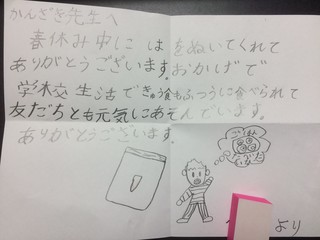 かんざき先生へ
春休み中にはをぬいてくれて
ありがとうございます。おかげで
学校生活できゅう食もふつうに食べられて
友だちとも元気にあそんでいます。
ありがとうございます。
より